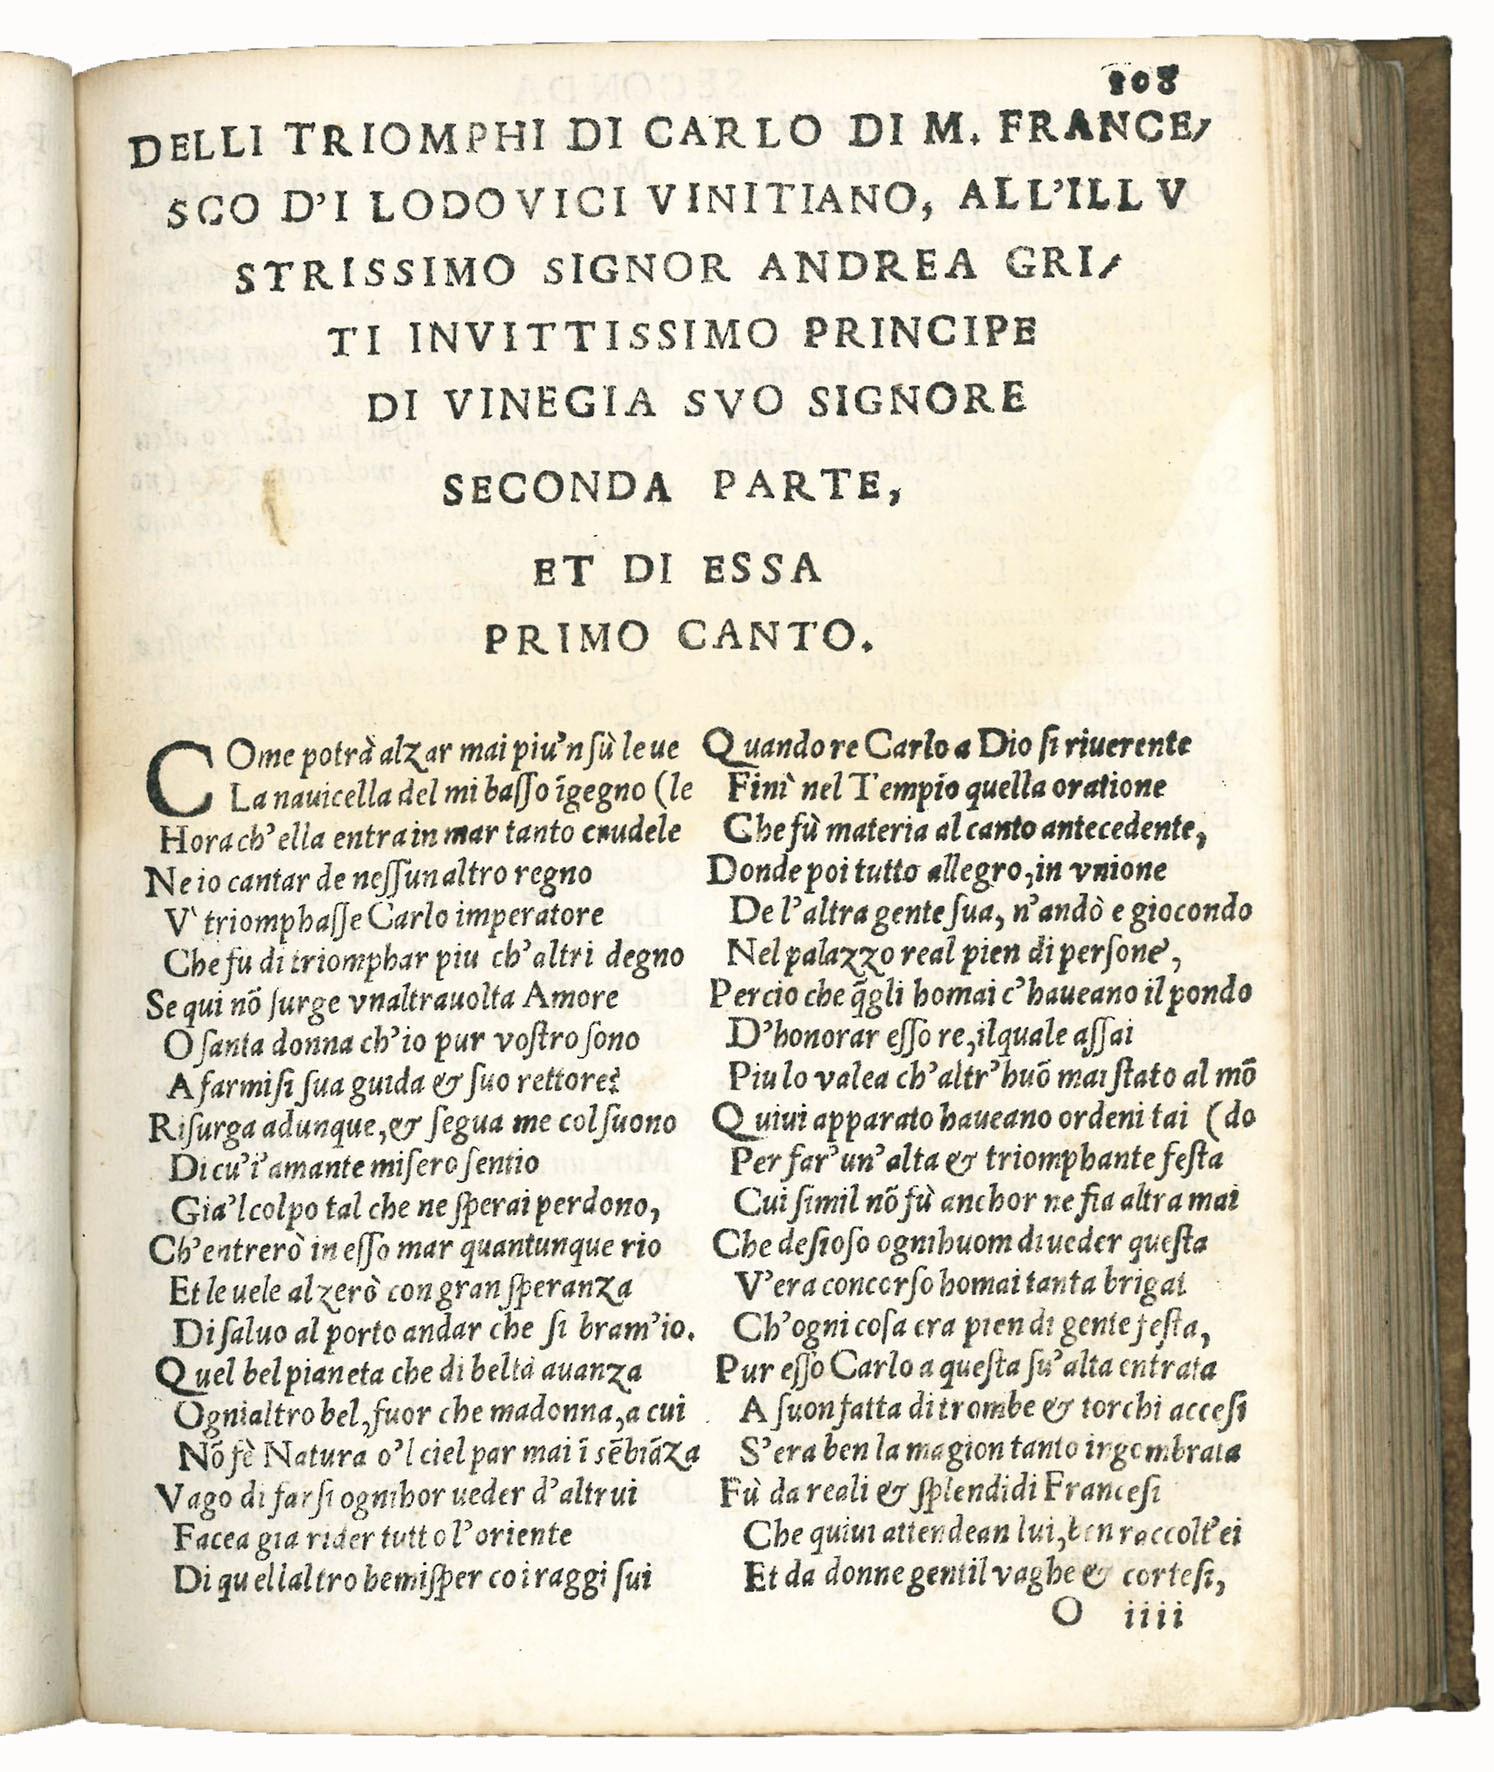 108
DELLI TRIOMPHI DI CARLO DI M. FRANCE/
SCO D'I LODOVICI VINITIANO, ALL'ILLV
STRISSIMO SIGNOR ANDREA GRI/
TI INVITTISSIMO PRINCIPE
DI VINEGIA SVO SIGNORE
SECONDA PARTE,
ET DI ESSA
PRIMO CANTO.
COme potrà alzar mai piu'n sù le ue
La nauicella del mi basso ĩgegno (le
Hora ch'ella entra in mar tanto crudele
Ne io cantar de nessun altro regno
V' triomphasse Carlo imperatore
Che fu di triomphar piu ch'altri degno
Se qui nõ surge vnaltrauolta Amore
O santa donna ch'io pur vostro sono
A farmisi sua guida & suo rettore?
Risurga adunque,& segua me col suono
Di cu'i'amante misero sentio
Gia'l colpo tal che ne sperai perdono,
Ch'entrerò in esso mar quantunque rio
Et le uele alzerò con gran speranza
Di saluo al porto andar che si bram'io.
Quel bel pianeta che di beltà auanza
Ognialtro bel, fuor che madonna, a cui
Nõ fè Natura o'l ciel par mai ĩ sẽbiãza
Vago di farsi ognihor ueder d'altrui
Facea gia rider tutto l'oriente
Di quellaltro hemisper co i raggi sui
Quando re Carlo a Dio si riuerente
Finì nel Tempio quella oratione
Che fù materia al canto antecedente,
Donde poi tutto allegro, in vnione
De l'altra gente sua, n'andò e giocondo
Nel palazzo real pien di persone,
Percio che q̃gli homai c'haueano il pondo
D'honorar esso re, ilquale assai
Piu lo valea ch'altr'huõ mai stato al mõ
Quiui apparato haueano ordeni tai (do
Per far'un'alta & triomphante festa
Cui simil nõ fù anchor ne fia altra mai
Che desioso ognihuom di ueder questa
V'era concorso homai tanta brigat
Ch'ogni cosa era pien di gente festa,
Pur esso Carlo a questa su'alta entrata
A suon fatta di trombe & torchi accesi
S'era ben la magion tanto ingombrata
Fù da reali & splendidi Francesi
Che quiui attendean lui, ben raccolt'ei
Et da donne gentil vaghe & cortesi,
O iiii